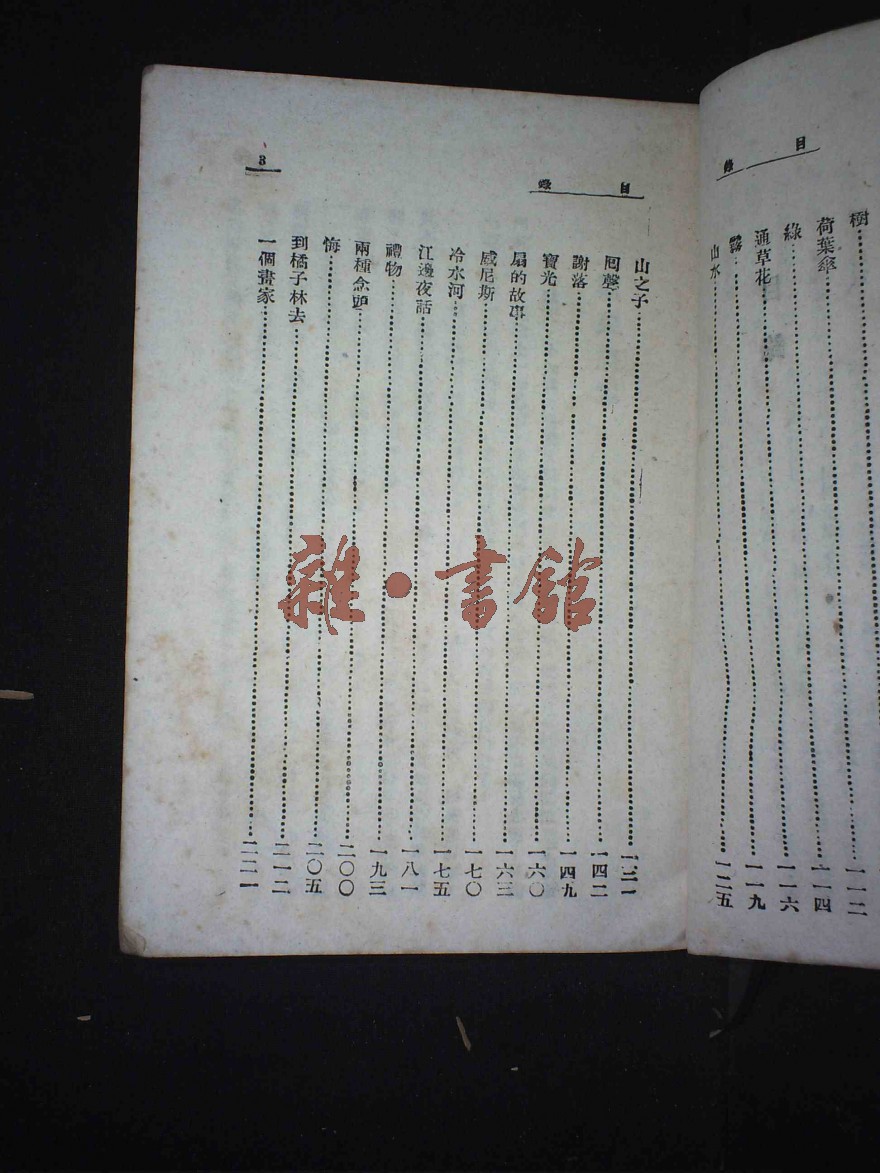 目錄
樹
荷葉傘……一一二
綠……一一四
通草花……一一六
霧……一一九
山水……一二五
目錄
3
山之子……一三一
囘聲……一四二
謝落……一四九
寶光……一六〇
扇的故事……一六三
威尼斯……一七〇
冷水河……一七五
江邊夜話……一八一
禮物……一九三
兩種念頭……二〇〇
悔……二〇五
到橘子林去……二一二
一個畫家……二二一
雜·書館